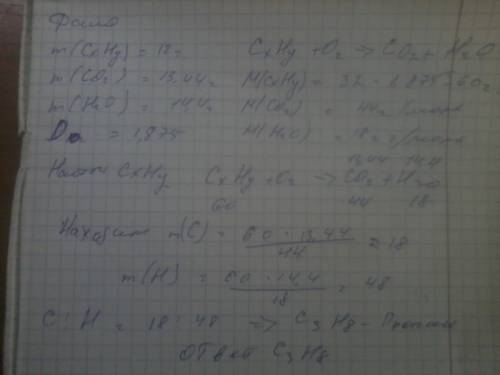 Дано
m(CxHy) = 12г CxHy + O2 → CO2 + H2O
m(CO2) = 13,44г M(CxHy) = 32 · 1,875 = 60г
m(H2O) = 14,4г M(CO2) = 44г/моль
= 1,875 M(H2O) = 18г/моль
13,44 14,4
Найти CxHy CxHy + O2 → CO2 + H2O
60 44 18
Находим m(C) = 60 · 13,44 / 44 = 18
m(H) = 60 · 14,4 / 18 = 48
C : H = 18 : 48 => C3H8 - Пропан
ответ C3H8